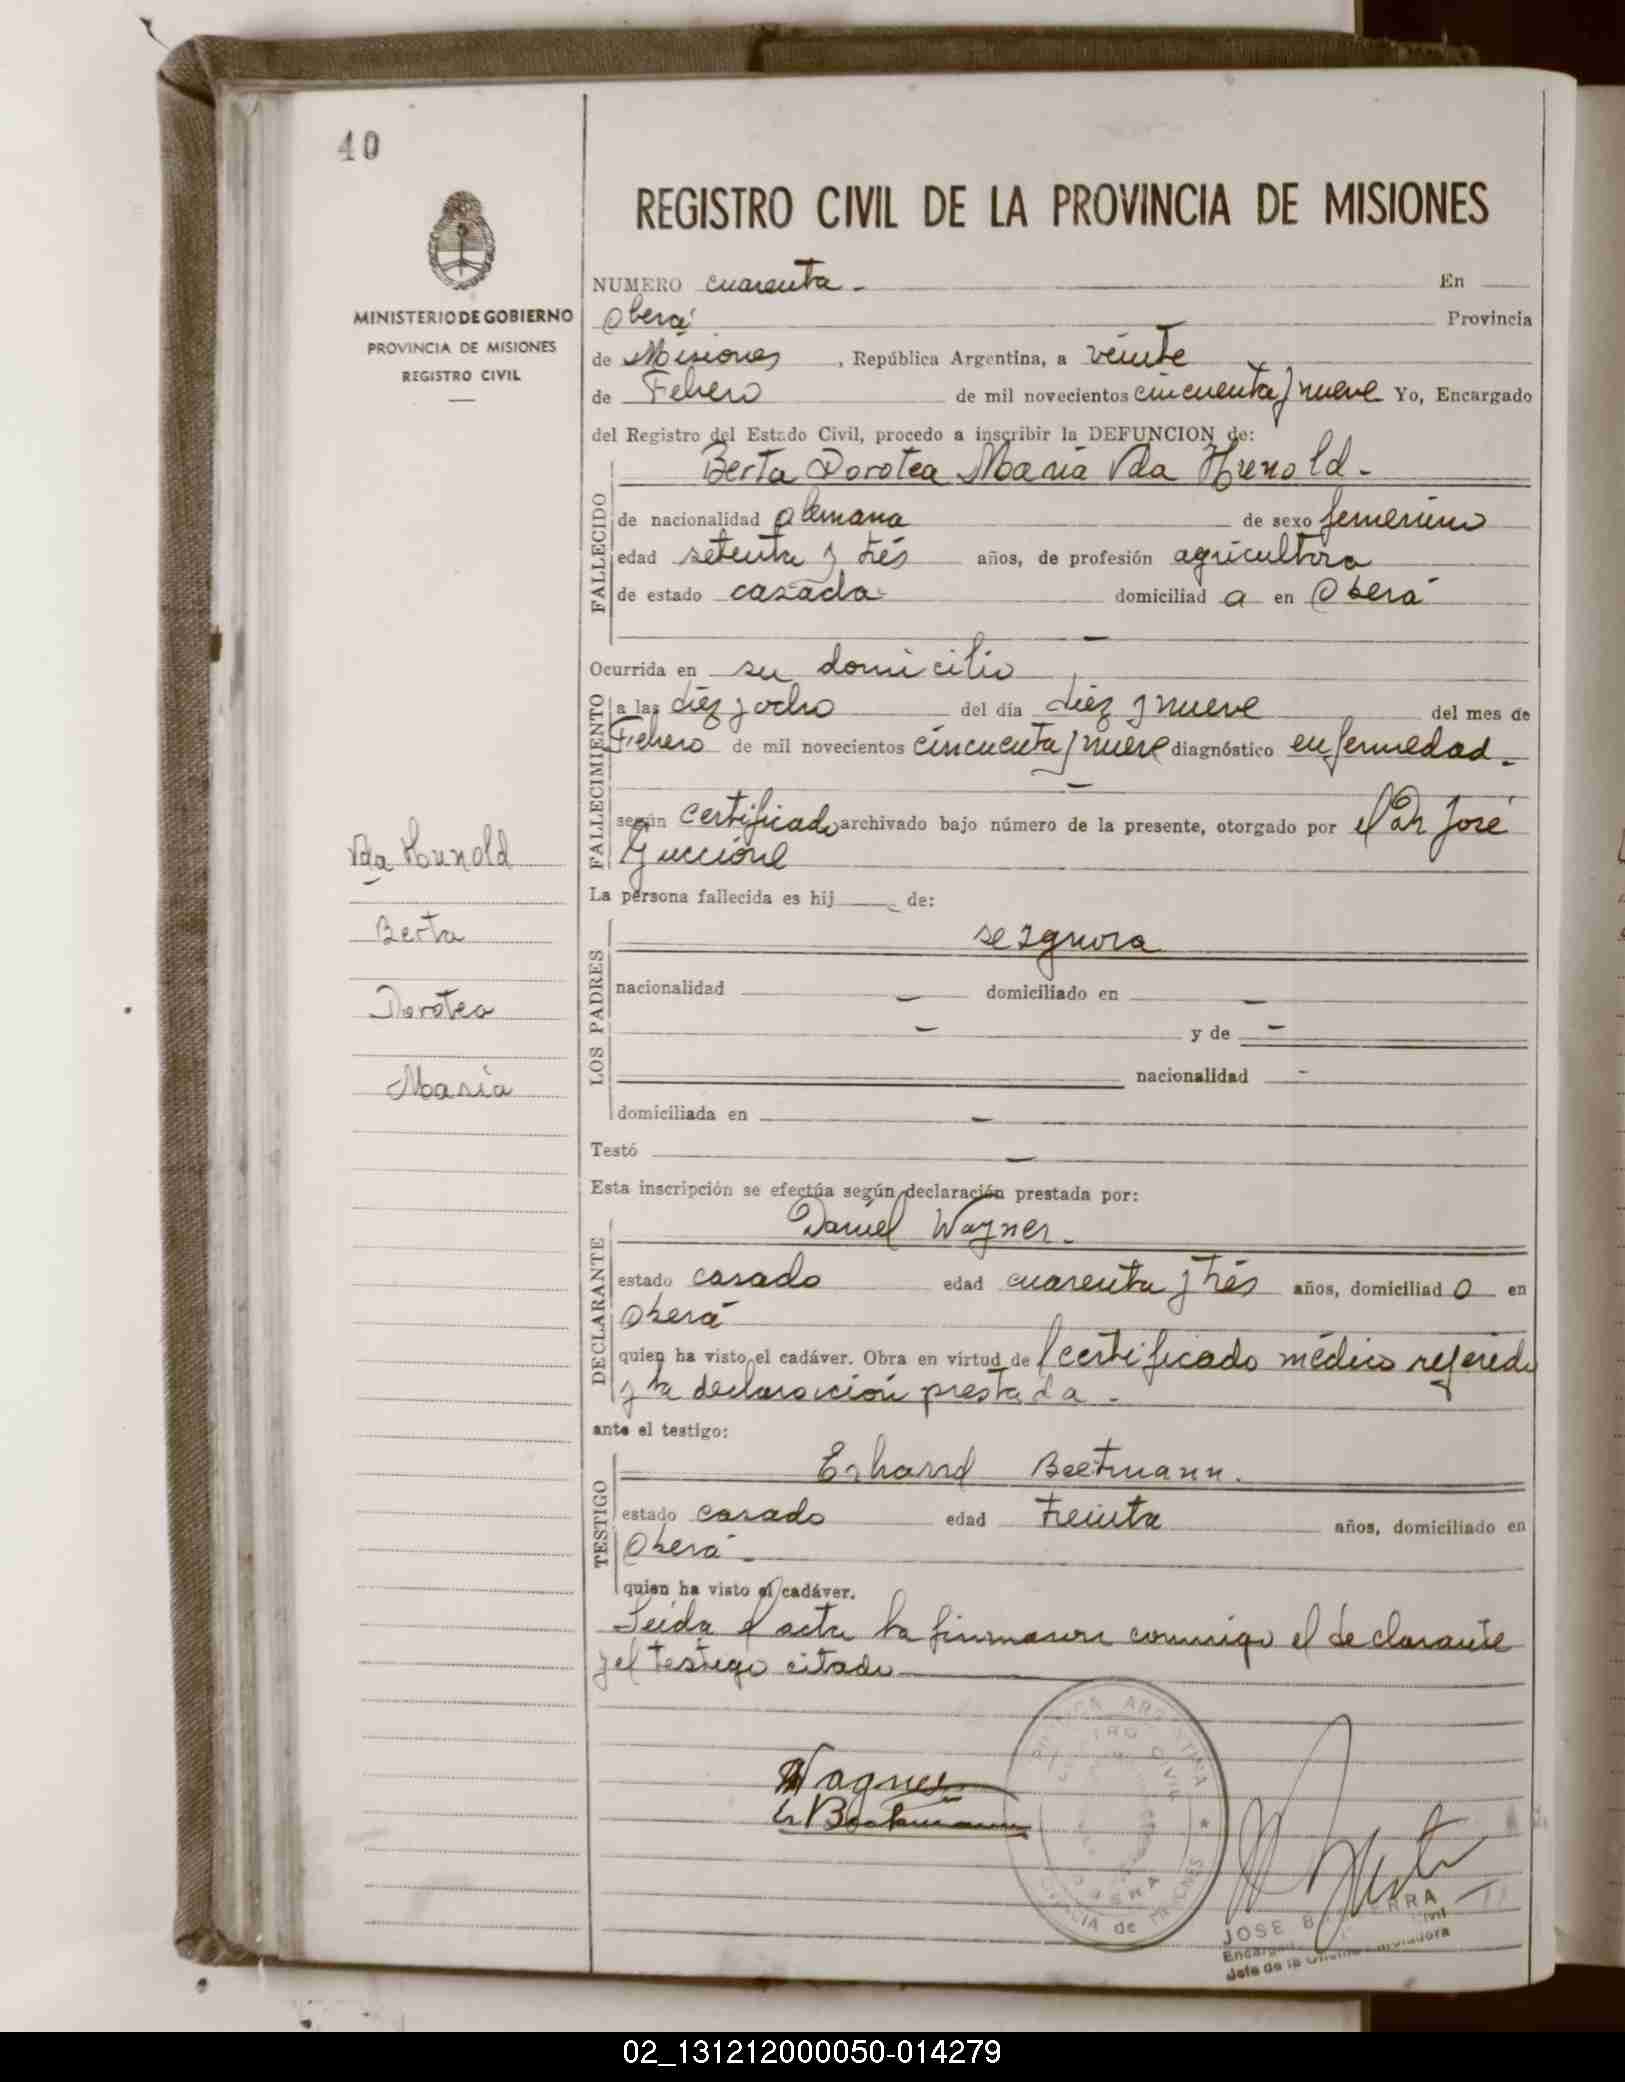 40
REGISTRO CIVIL DE LA PROVINCIA DE MISIONES
MINISTERIO DE GOBIERNO
PROVINCIA DE MISIONES
REGISTRO CIVIL
NUMERO cuarenta - En
Oberá Provincia
de Misiones, República Argentina, a veinte
de Febrero de mil novecientos cincuenta y nueve Yo, Encargado
del Registro del Estado Civil, procedo a inscribir la DEFUNCION de:
Berta Dorotea Maria Vda Hunold -
FALLECIDO
de nacionalidad alemana de sexo femenino
edad setenta y trés años, de profesión agricultora
de estado casada domiciliad a en Oberá
Ocurrida en su domicilio
FALLECIMIENTO
a las diez y ocho del día diez y nueve del mes de
Febrero de mil novecientos cincuenta y nueve diagnóstico enfermedad -
según certificado archivado bajo número de la presente, otorgado por el Dr José
Guccione
Vda Hunold
Berta
Dorotea
Maria
La persona fallecida es hij de:
LOS PADRES
se ignora
nacionalidad - domiciliado en -
- y de -
nacionalidad -
domiciliada en -
Testó -
Esta inscripción se efectúa según declaración prestada por:
DECLARANTE
Daniel Wagner -
estado casado edad cuarenta y trés años, domiciliad o en
Oberá
quien ha visto el cadáver. Obra en virtud de l certificado médico referido
y la declaración prestada -
ante el testigo:
TESTIGO
Erhard Beetmann.
estado casado edad treinta años, domiciliado en
Oberá -
quien ha visto el cadáver.
Leida el acta la firmaron conmigo el declarante
y el testigo citado
Wagner
JOSE
Jefe de la
02_131212000050-014279